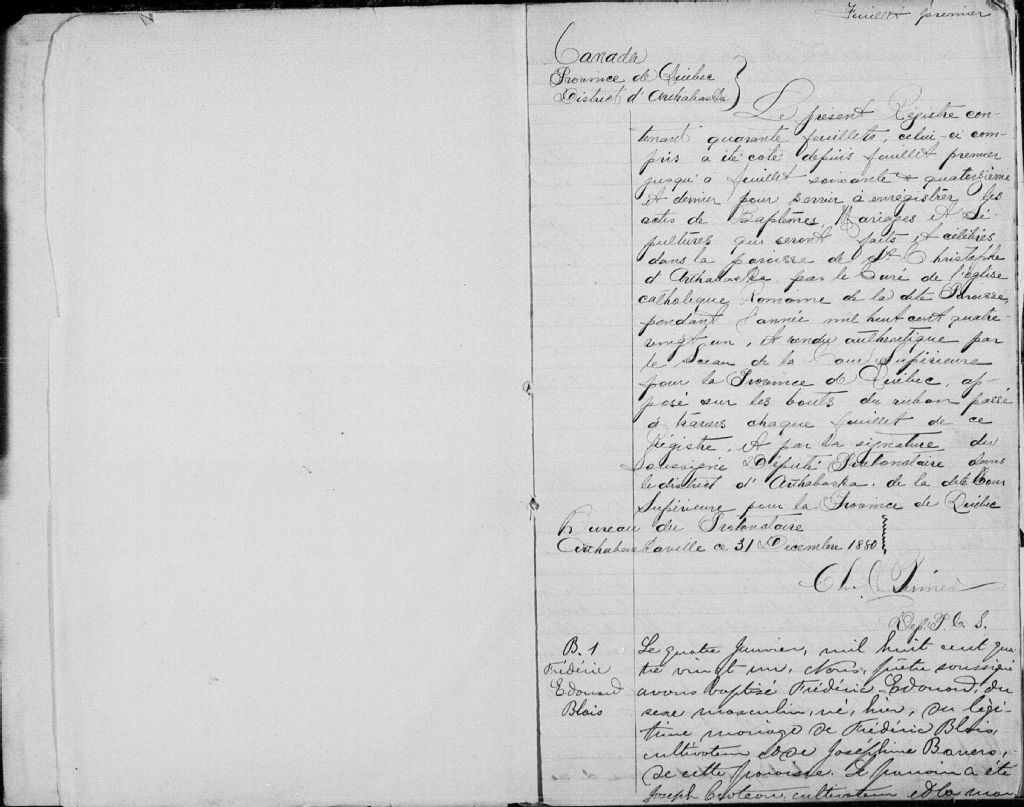 Feuillet premier
Canada
Province de Québec
District d'Arthabaska
Le présent Régistre con-
tenant quarante feuillets, celui-ci com-
pris a été coté depuis feuillet premier
jusqu'à feuillet soixante & quatorzième
et dernier pour servir à enrégistrer les
actes de Baptêmes, Mariages et Sé-
pultures qui seront faits et célébrés
dans la paroisse de St Christophe
d'Arthabaska, par le Curé de l'église
catholique Romaine de la dite Paroisse,
pendant l'année mil huit cent quatre-
vingt un, et rendu authentique par
le Sceau de la Cour Supérieure
pour la Province de Québec, ap-
posé sur les bouts du ruban passé
à travers chaque feuillet de ce
Régistre, et par la signature du
soussigné Député Protonotaire dans
le district d'Arthabaska, de la dite Cour
Supérieure pour la Province de Québec
Bureau du Protonotaire
Arthabaskaville ce 31 Décembre 1880
Dep. P. C. S.
B. 1
Frédéric
Edouard
Blais
Le quatre Janvier, mil huit cent qua
tre vingt un, Nous, prêtre soussigné
avons baptisé Frédéric-Edouard, du
sexe masculin, né, hier, du légi-
time mariage de Frédéric Blais,
cultivateur et de Joséphine
de cette paroisse. Le parrain a été
Joseph Croteau, cultivateur et la mar